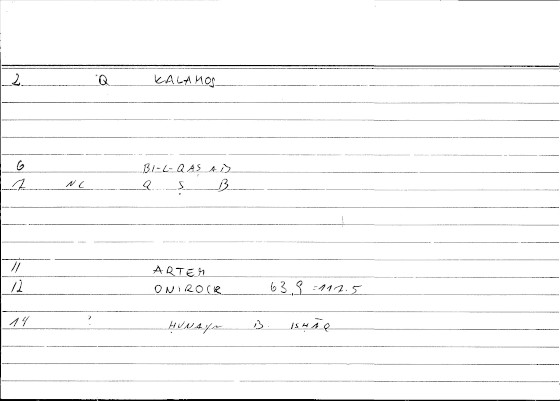 2 Q KALAMOS
6 BI-L-QAṢAB
7 NC Q Ṣ B
11 ARTEM
12 ONIROCR 63,9 = 117.5
14 : ḤUNAYN B. ISḤĀQ